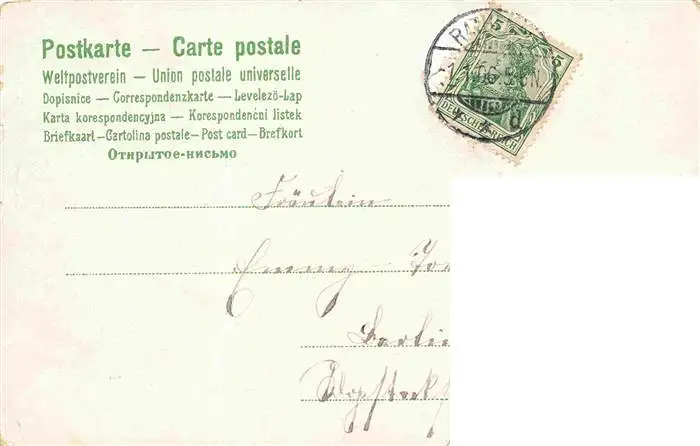 Postkarte — Carte postale
Weltpostverein — Union postale universelle
Dopisnice — Correspondenzkarte — Levelező-Lap
Karta korespondencyjna — Korespondenční lístek
Briefkaart — Cartolina postale — Post card — Brefkort
Открытое-письмо
5 5
DEUTSCHES REICH
Fräulein
Emmy
Berlin